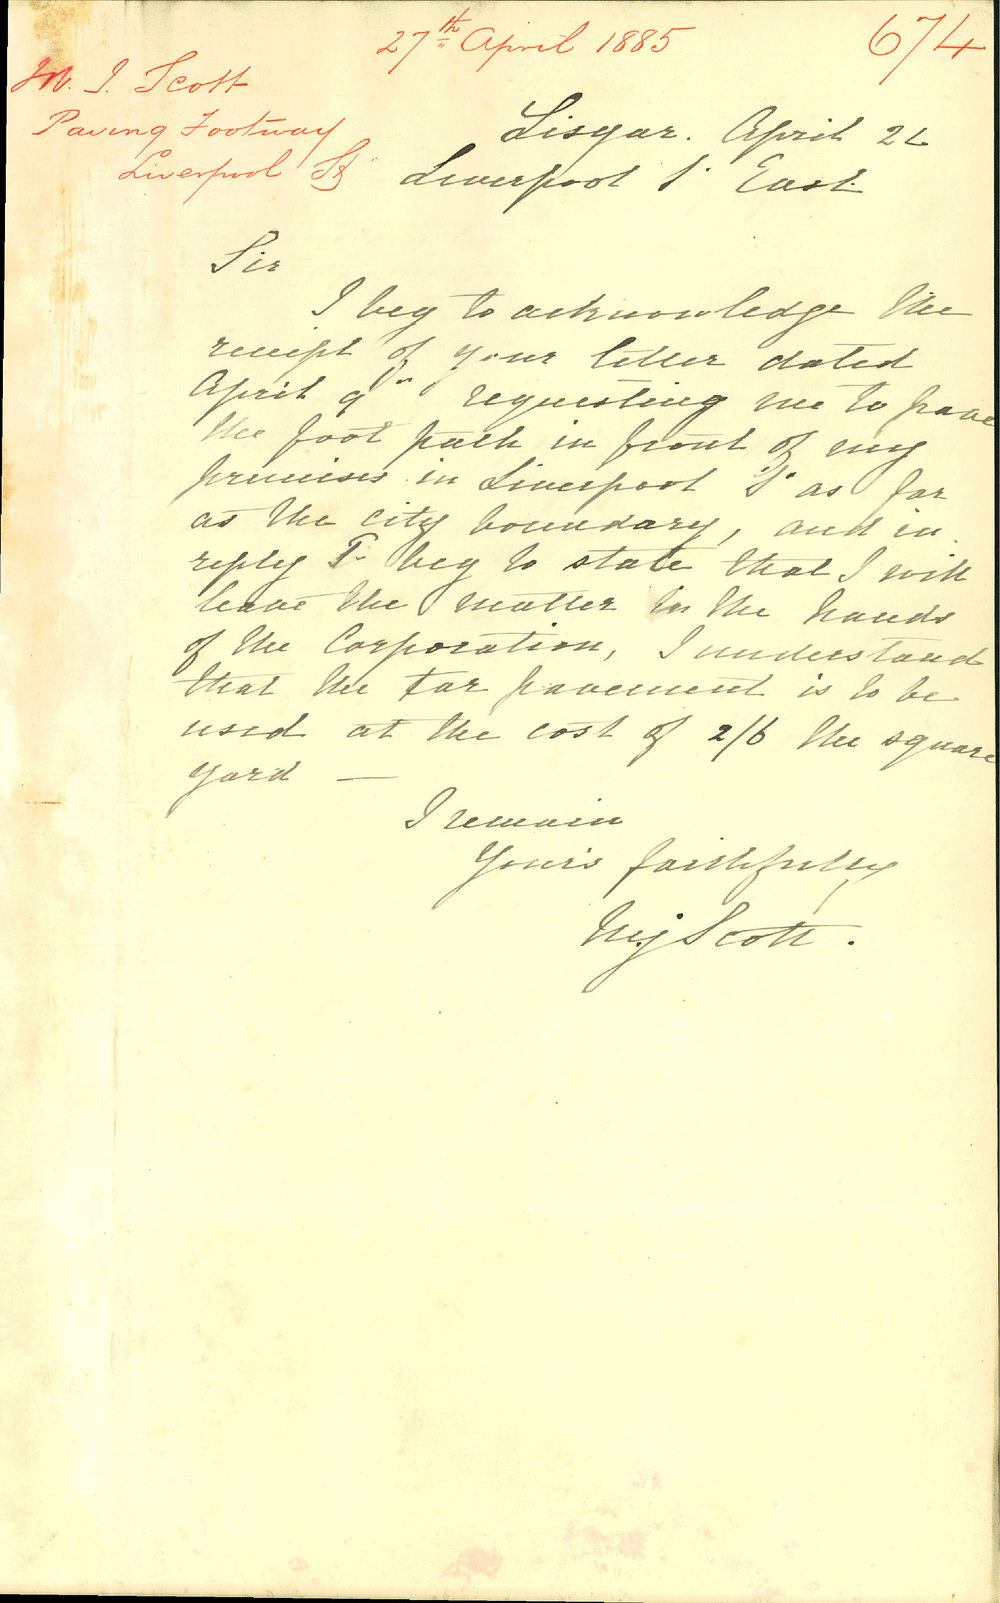 27th April 1885
674
M. J. Scott
Paving Footway
Liverpool St
Lisgar. April 22
Liverpool St East.
Sir
I beg to acknowledge the
receipt of your letter dated
April 9th requesting me to pave
the foot path in front of my
premises in Liverpool St as far
as the city boundary, and in
reply I beg to state that I will
leave the matter in the hands
of the Corporation, I understand
that the tar pavement is to be
used at the cost of 2/6 the square
yard —
I remain
Your's faithfully,
M J Scott.